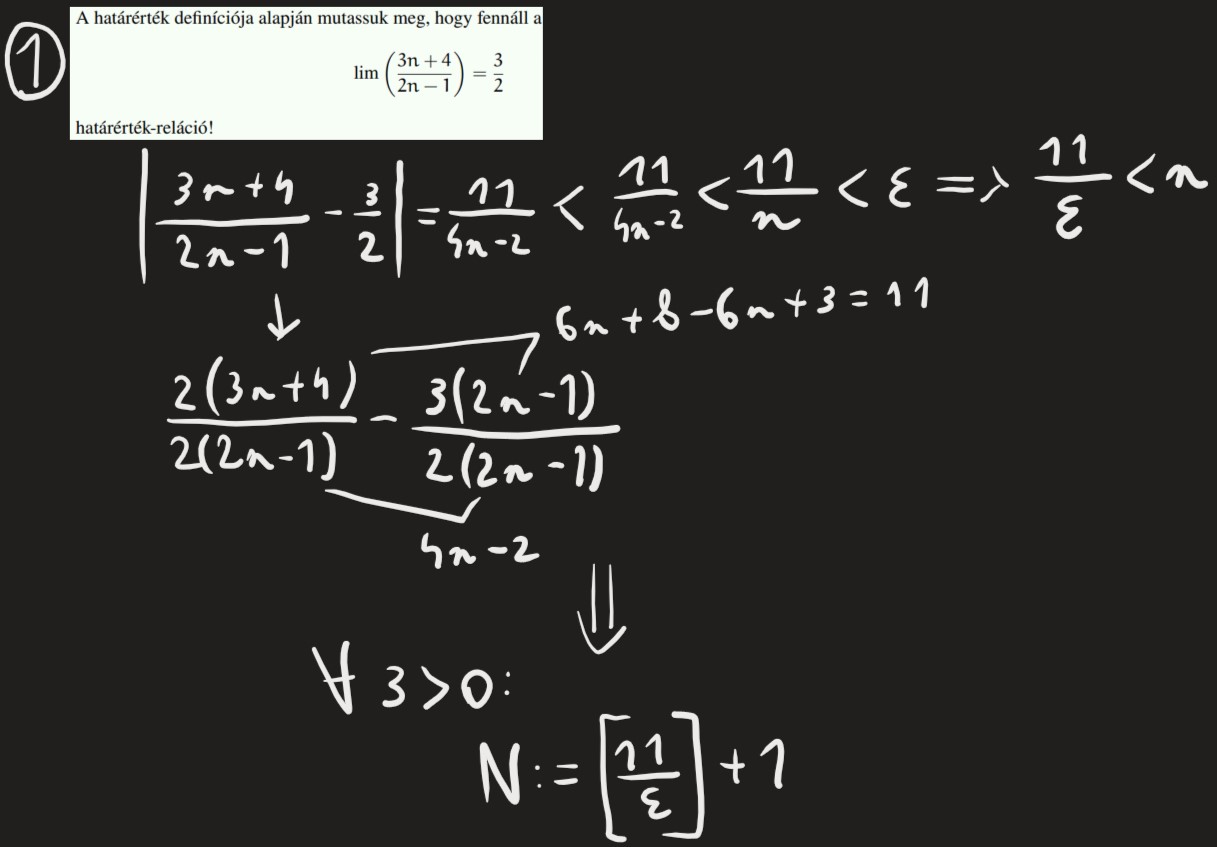 1
A határérték definíciója alapján mutassuk meg, hogy fennáll a
lim ( (3n + 4)/(2n − 1) ) = 3/2
határérték-reláció!
| (3n+4)/(2n−1) − 3/2 | = 11/(4n−2) < 11/(4n−2) < 11/n < ε => 11/ε < n
↓
6n+8−6n+3=11
2(3n+4)/2(2n−1) − 3(2n−1)/2(2n−1)
4n−2
⇓
∀ 3>0:
N:= [11/ε] +1